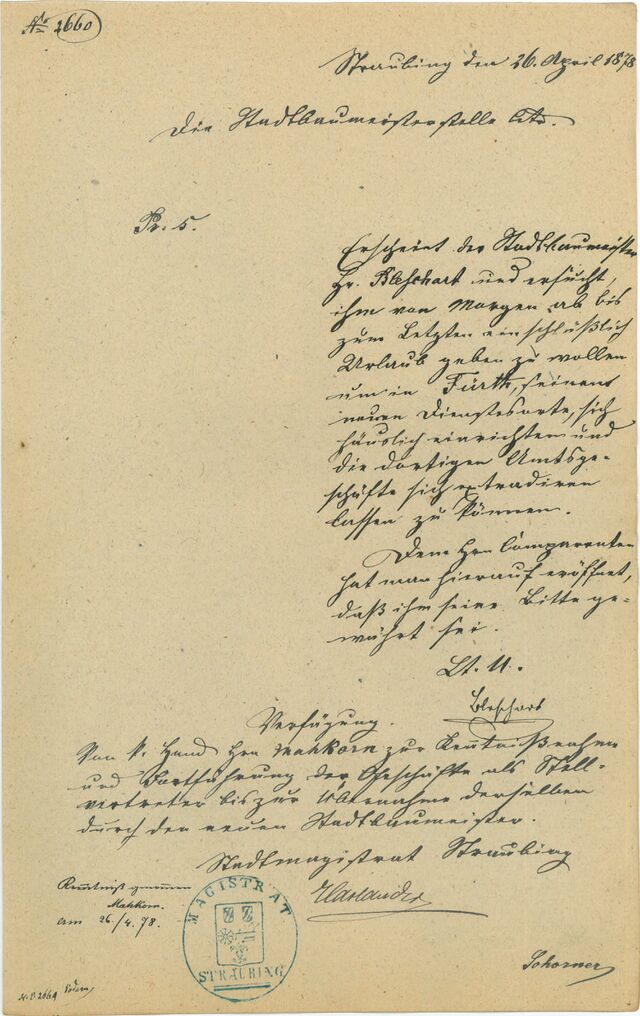 No 2660
Straubing den 26. April 1878
Die Stadtbaumeisterstelle betr.
Pr. 5.
Erscheint der Stadtbaumeister
Hr. Bleschart und ersucht,
ihm von Morgen ab bis
zum Letzten einschlüßlich
Urlaub geben zu wollen
um in Fürth, seinem
neuen Dienstesorte, sich
häuslich einrichten und
die dortigen Amtsge-
schäfte sich extradiren
lassen zu können.
Dem Hrn Comparenten
hat man hierauf eröffnet,
daß ihm seine Bitte ge-
währt sei.
Lt. U.
Bleschart
Verfügung.
Von k. Hand Hrn Mahkorn zur Kenntnißnahme
und Fortführung der Geschäfte als Stell-
vertreter bis zur Übernahme derselben
durch den neuen Stadtbaumeister.
Stadtmagistrat Straubing
Harlander
Kenntniß genommen
Mahkorn.
am 26./4. 78.
MAGISTRAT
STRAUBING
Schorner